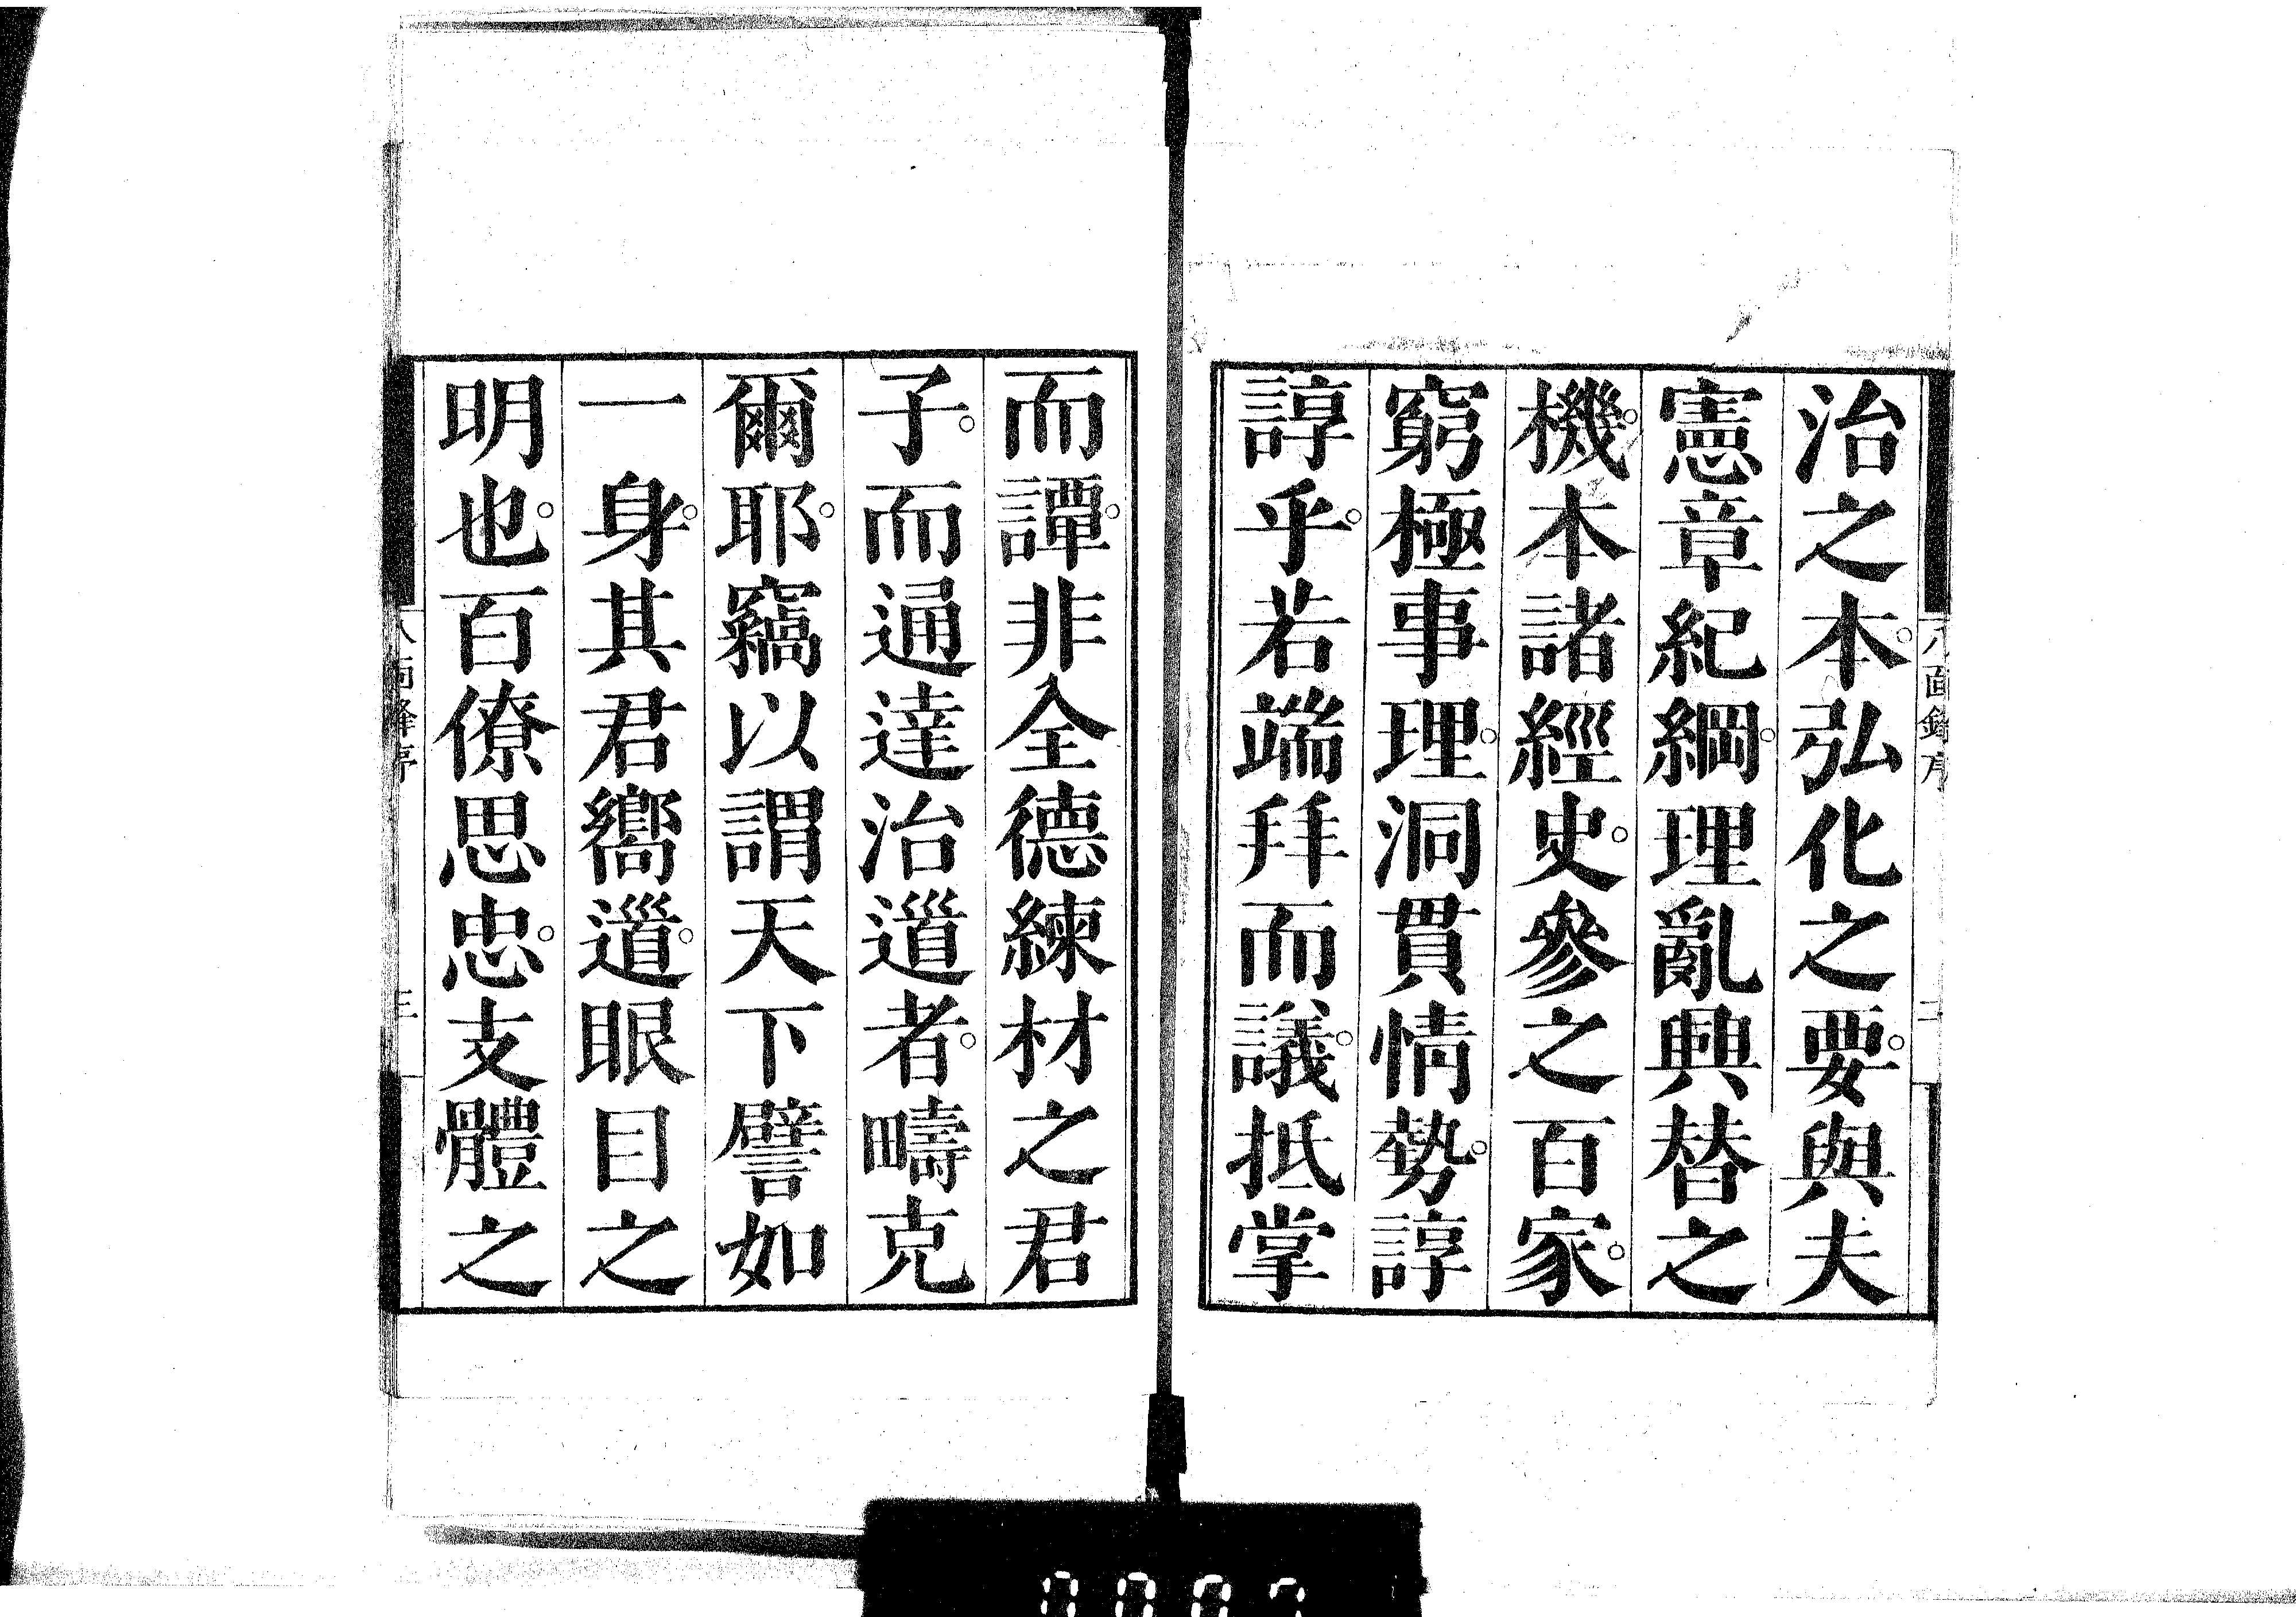 八面鋒序
二
治之本。弘化之要。與夫
憲章紀綱。理亂興替之
機。本諸經史。參之百家。
窮極事理。洞貫情勢。諄
諄乎。若端拜而議。抵掌
而譚。非全德練材之君
子。而通達治道者。疇克
爾耶。竊以謂天下譬如
一身。其君嚮道。眼目之
明也。百僚思忠。支體之
八面鋒序
三